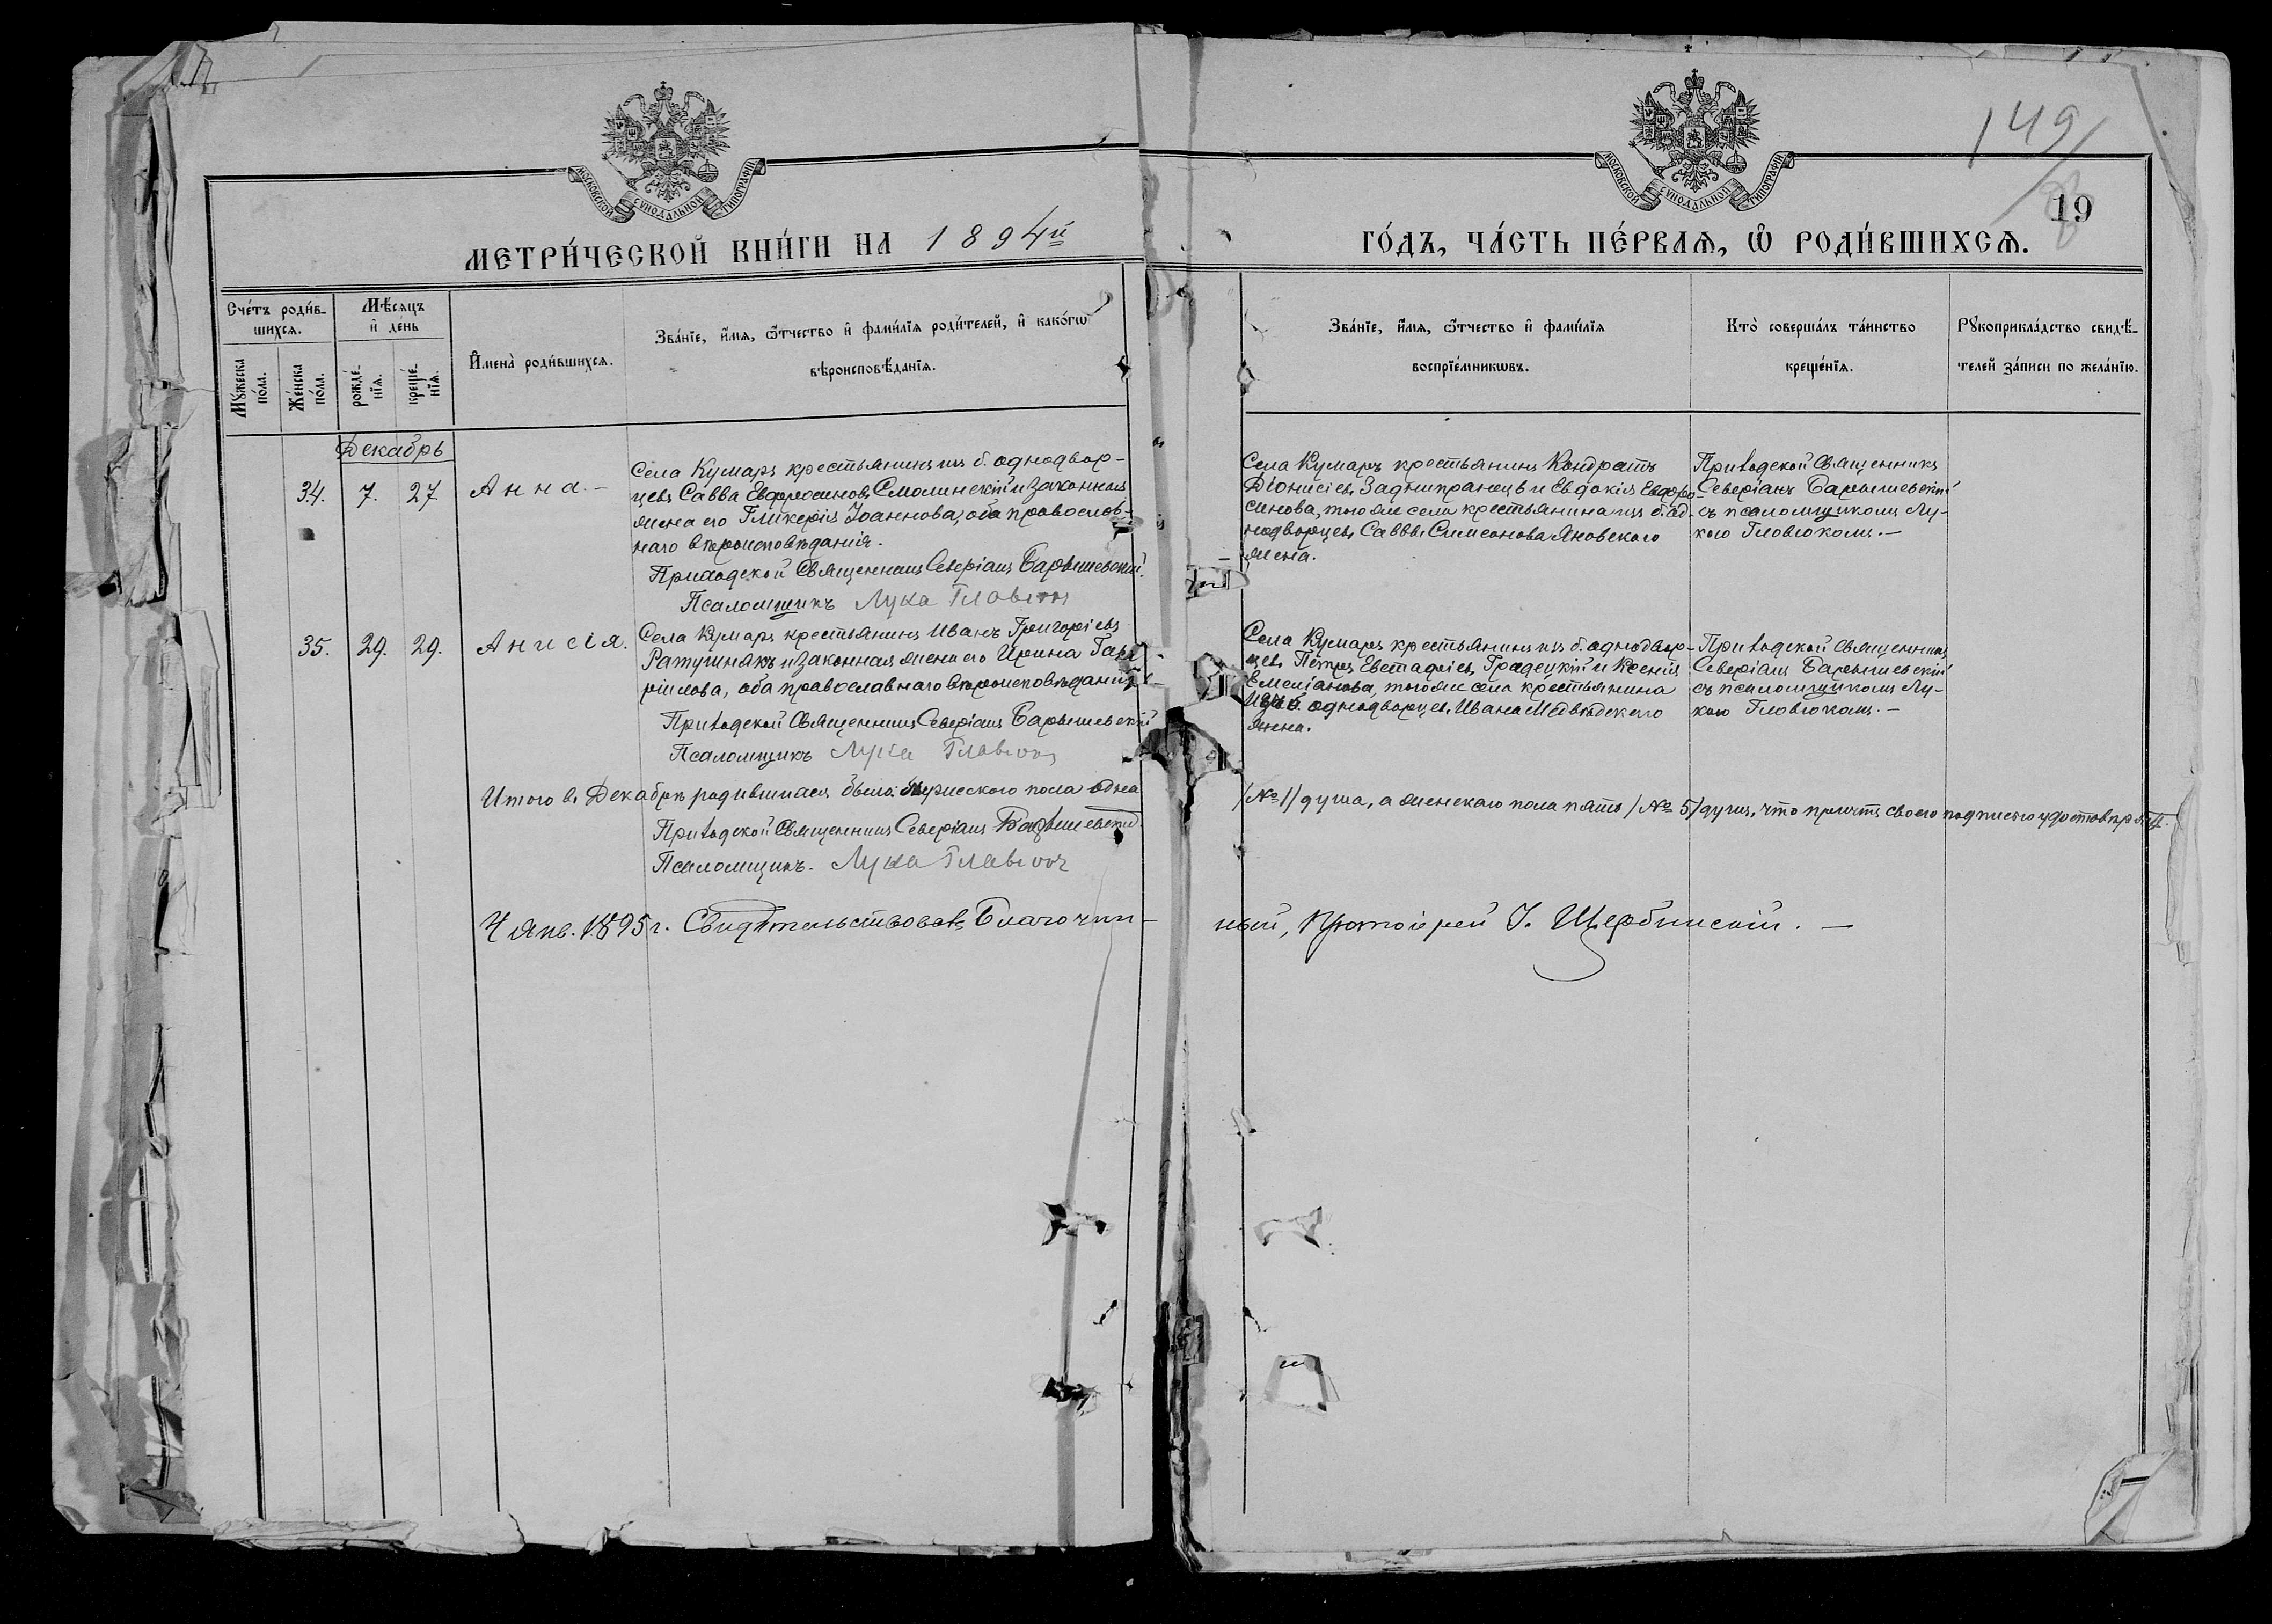 149
19
МОСКОВСКОЙ СУНОДАЛЬНОЙ ТИПОГРАФІИ
МОСКОВСКОЙ СУНОДАЛЬНОЙ ТИПОГРАФІИ
МЕТРИ́ЧЕСКОЙ КНИ́ГИ НА 1894й
ГО́ДЪ, ЧА́СТЬ ПЕ́РВАѦ, Ѡ҆ РОДИ́ВШИХСѦ.
Сче́тъ роди́в-
шихсѧ.
Мꙋ́жеска
по́ла.
Же́нска
по́ла.
Мѣ́сѧцъ
и҆ де́нь
рожде́-
нїѧ.
креще́-
нїѧ.
И҆мена̀ роди́вшихсѧ.
Зва́нїе, и҆́мѧ, ѻ҆́тчество и҆ фами́лїѧ роди́телей, и҆ како́гѡ
вѣроисповѣ́данїѧ.
Зва́нїе, и҆́мѧ, ѻ҆́тчество и҆ фами́лїѧ
воспрїе́мникѡвъ.
Кто̀ соверша́лъ та́инство
креще́нїѧ.
Рꙋкоприкла́дство свидѣ́-
телей за́писи по жела́нїю.
Декабрь
34. 7. 27 Анна. –
Села Кумаръ крестьянинъ изъ б. однодвор-
цевъ Савва Евфросиновъ Смолинскій и законная
жена его Гликерія Іоаннова, оба православ-
наго вѣроисповѣданія.
Приходской Священникъ Северіанъ Барышевскій.
Псаломщикъ Лука
Села Кумаръ крестьянинъ Кондратъ
Діонисіевъ Заднипранецъ и Евдокія Евфро-
синова, тогоже села крестьянина изъ б. од-
нодворцевъ Саввы Симеонова Яновского
жена.
Приходской Священникъ
Северіанъ Барышевскій
съ псаломщикомъ Лу-
кою Гловюкомъ. –
35. 29. 29. Анисія.
Села Кумаръ крестьянинъ Иванъ Григоріевъ
Ратушнякъ и законная жена его Ирина Гав-
ріилова, оба православнаго вѣроисповѣданія.
Приходской Священникъ Северіанъ Барышевскій
Псаломщикъ Лука
Села Кумаръ крестьянинъ изъ б. однодвор-
цевъ Петръ Евстафіевъ Градецкій и Ксенія
Емеліанова, тогоже села крестьянина
изъ б. однодворцевъ Ивана Медвѣдского
жена.
Приходской Священникъ
Северіанъ Барышевскій
съ псаломщикомъ Лу-
кою Гловюкомъ. –
Итого въ Декабрѣ родившихся было: мужеского пола одна /№ 1/ душа, а женскаго пола пять /№ 5/ душъ, что причтъ своею подписью
Приходской Священникъ Северіанъ Барышевскій.
Псаломщикъ. Лука
4 Янв. 1895 г. Свидѣтельствовалъ Благочин-
ный, Протоіерей І. Щербинскій. –